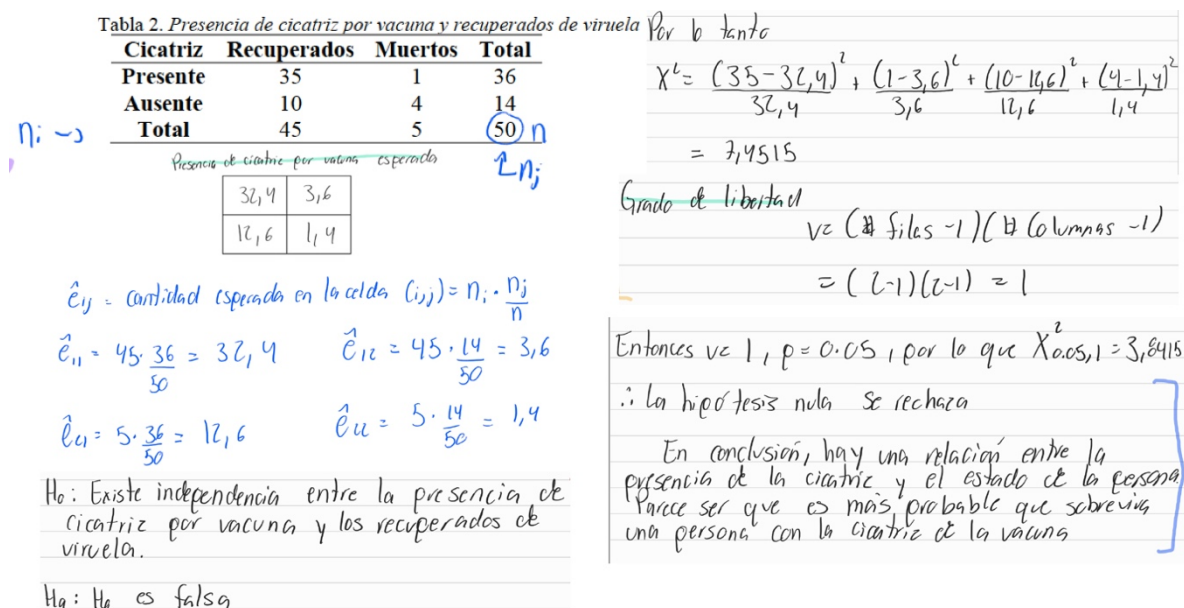 Tabla 2. Presencia de cicatriz por vacuna y recuperados de viruela
Cicatriz Recuperados Muertos Total
Presente 35 1 36
Ausente 10 4 14
Total 45 5 50
ni → n
↑ nj
Presencia de cicatriz por vacuna esperada
32,4 3,6
12,6 1,4
êij = cantidad esperada en la celda (i,j) = ni · nj/n
ê11 = 45 · 36/50 = 32,4 ê12 = 45 · 14/50 = 3,6
ê21 = 5 · 36/50 = 12,6 ê22 = 5 · 14/50 = 1,4
Ho: Existe independencia entre la presencia de
cicatriz por vacuna y los recuperados de
viruela.
Ha: Ho es falsa
Por lo tanto
X² = (35-32,4)²/32,4 + (1-3,6)²/3,6 + (10-12,6)²/12,6 + (4-1,4)²/1,4
= 7,4515
Grado de libertad
v= (# filas -1)(# Columnas -1)
= (2-1)(2-1) = 1
Entonces v= 1, p= 0.05, por lo que X²0.05,1 = 3,8415
∴ La hipótesis nula se rechaza
En conclusión, hay una relación entre la
presencia de la cicatriz y el estado de la persona.
Parece ser que es más probable que sobreviva
una persona con la cicatriz de la vacuna